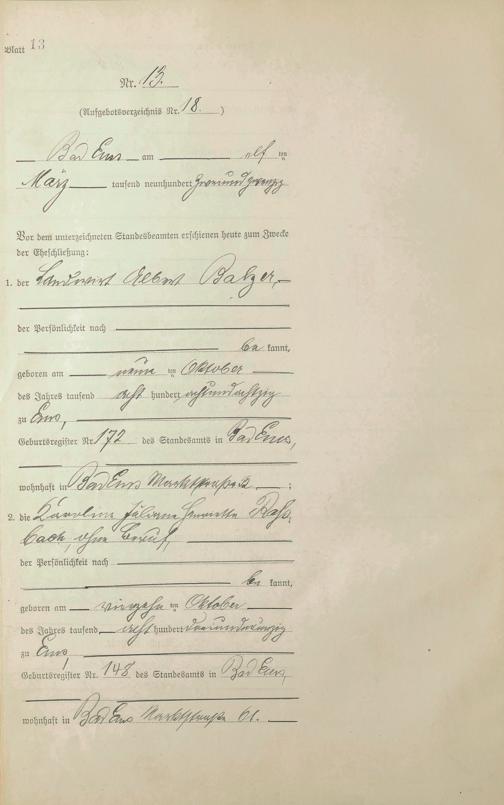 Blatt 13
Nr. 13.
(Aufgebotsverzeichnis Nr. 18.)
Bad Ems am elf ten
März tausend neunhundert zweiundzwanzig
Vor dem unterzeichneten Standesbeamten erschienen heute zum Zwecke
der Eheschließung:
1. der Landwirt Albert Balzer,
der Persönlichkeit nach
be kannt,
geboren am neun ten Oktober
des Jahres tausend acht hundert achtundachtzig
zu Ems,
Geburtsregister Nr. 172 des Standesamts in Bad Ems,
wohnhaft in Bad Ems Marktstraße ;
2. die Karoline Juliane Henriette
bach, ohne Beruf,
der Persönlichkeit nach
be kannt,
geboren am vierzehn ten Oktober
des Jahres tausend acht hundert
zu Ems,
Geburtsregister Nr. 148 des Standesamts in Bad Ems,
wohnhaft in Bad Ems Marktstraße 61.